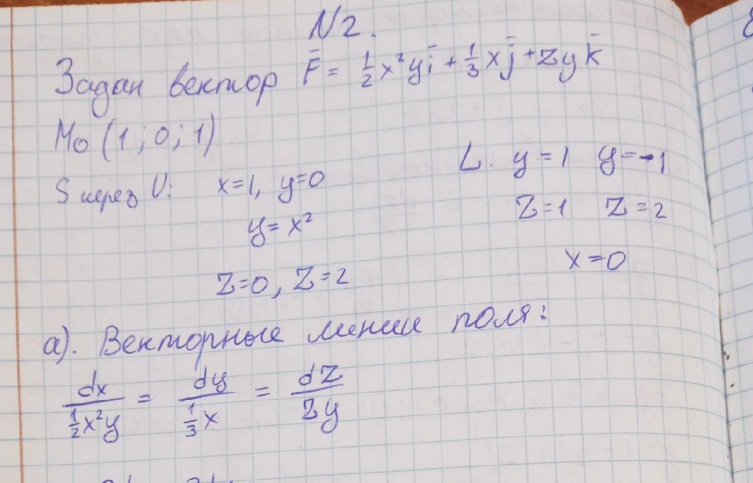 N2.
Задан вектор F̄ = 1/2 x²yī + 1/3 xj̄ + zyk̄
M₀ (1; 0; 1)
S через V: x=1, y=0
y=x²
Z=0, Z=2
L. y=1 y=-1
Z=1 Z=2
x=0
а). Векторные линии поля:
dx / 1/2 x²y = dy / 1/3 x = dZ / Zy